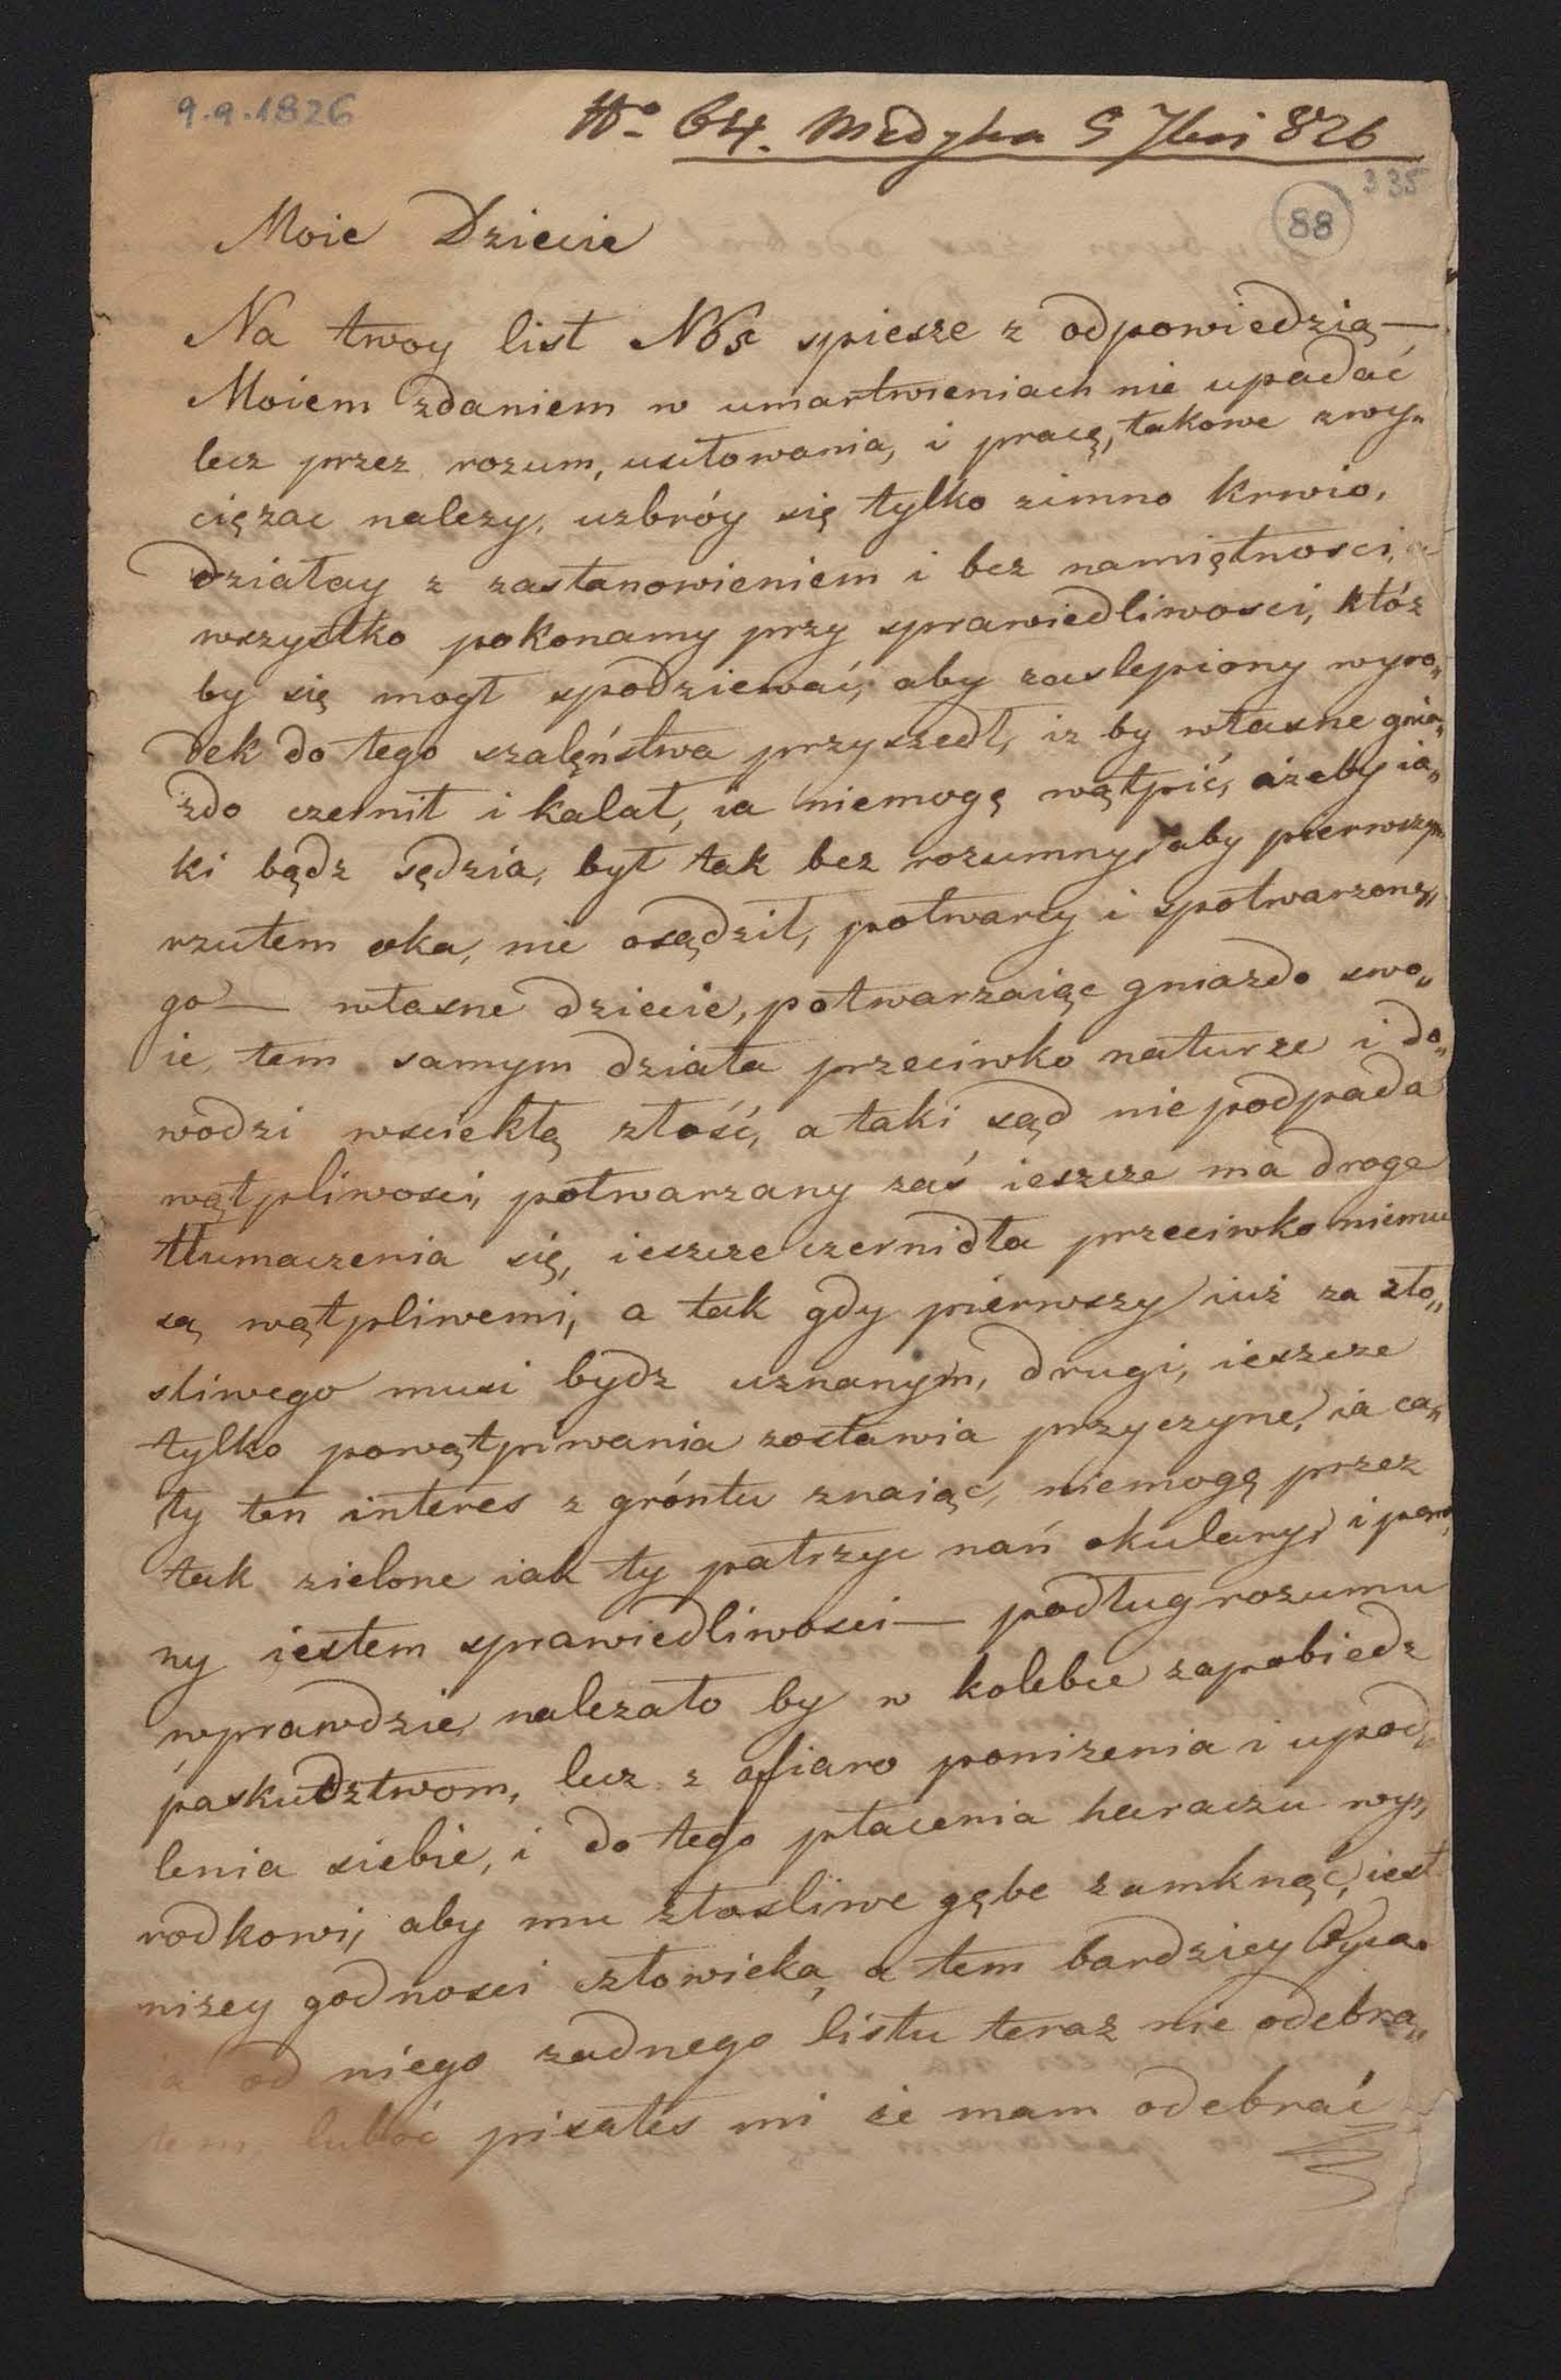 9.9.1826
No 64. Medyka 9 7bri 826
335
88
Moie Dziecie
Na twoy list N65 spiesze z odpowiedzią —
Moiem zdaniem w umartwieniach nie upadać
lecz przez rozum, usiłowania, i pracę, takowe zwy„
ciężac nalezy, uzbróy się tylko zimno krwio,
działay z zastanowieniem i bez namiętnosci, a
wszystko pokonamy przy sprawiedliwosci, któż
by się mogł spodziewać, aby zaslepiony wyro„
dek do tego szalęństwa przyszedł, iz by własne gnia„
zdo czernił i kalał, ia niemogę wątpić, ażeby ia„
ki bądz sędzia, był tak bez rozumny, aby pierwszym
rzutem oka, nie osądził, potwarcy i spotwarzone„
go — własne dziecie, potwarzaiąc gniazdo swo„
ie, tem samym działa przeciwko naturze i do„
wodzi wsciekłą złość, a taki sąd nie podpada
wątpliwosci, potwarzany zaś ieszcze ma droge
tłumaczenia się, ieszcze czernidła przeciwko niemu
są wątpliwemi, a tak gdy pierwszy iuż za zło„
sliwego musi bydz uznanym, drugi, ieszcze
tylko powątpiwania zostawia przyczyne, ia ca„
ły ten interes z gróntu znaiąc, niemogę przez
tak zielone iak ty patrzyc nań okulary, i pew„
ny iestem sprawiedliwosci — podług rozumu
wprawdzie nalezało by w kolebce zapobiedz
paskudztwom, lecz z ofiaro ponizenia i upod„
lenia siebie, i do tego płacenia haraczu wy„
rodkowi, aby mu złosliwe gębe zamknąć, iest
nizey godnosci człowieka, a tem bardziey Oyca.
ia od niego zadnego listu teraz nie odebra„
łem, luboć pisałes mi że mam odebrać